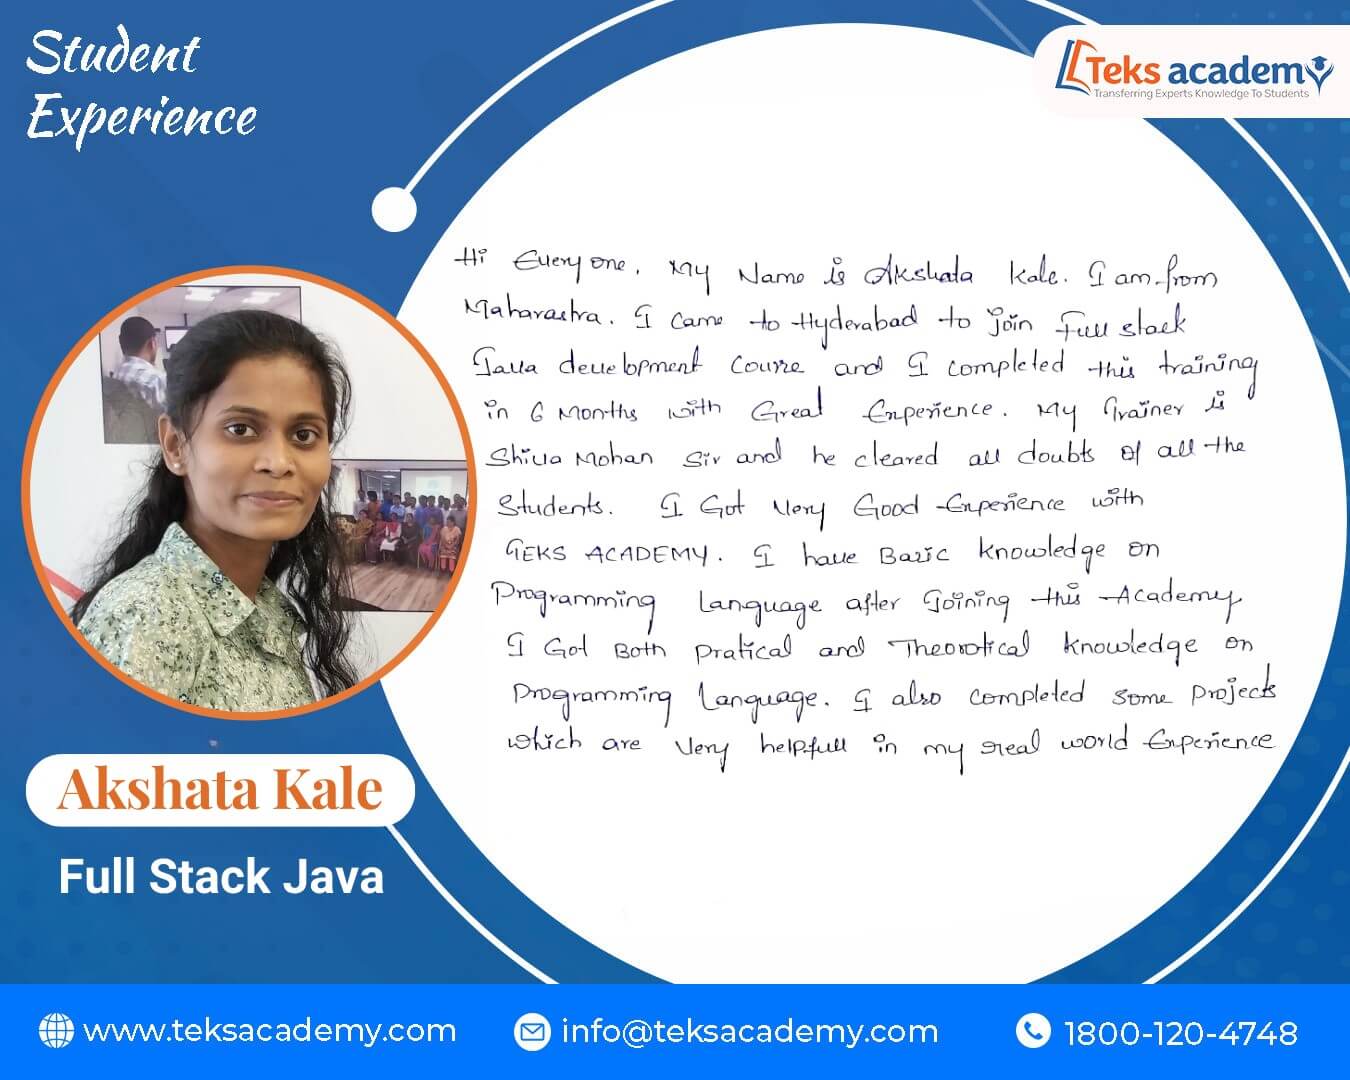 Student
Experience
Teks academy
Transferring Experts Knowledge To Students
Hi Everyone. My Name is Akshata Kale. I am from
Maharastra. I came to Hyderabad to join Full stack
Java development course and I completed this training
in 6 Months with Great Experience. My Trainer is
Shiva Mohan Sir and he cleared all doubts of all the
Students. I Got Very Good Experience with
TEKS ACADEMY. I have Basic knowledge on
Programming Language after Joining this Academy
I Got Both pratical and Theorotical knowledge on
Programming Language. I also completed some projects
which are Very helpfull in my real world Experience
Akshata Kale
Full Stack Java
www.teksacademy.com
info@teksacademy.com
1800-120-4748